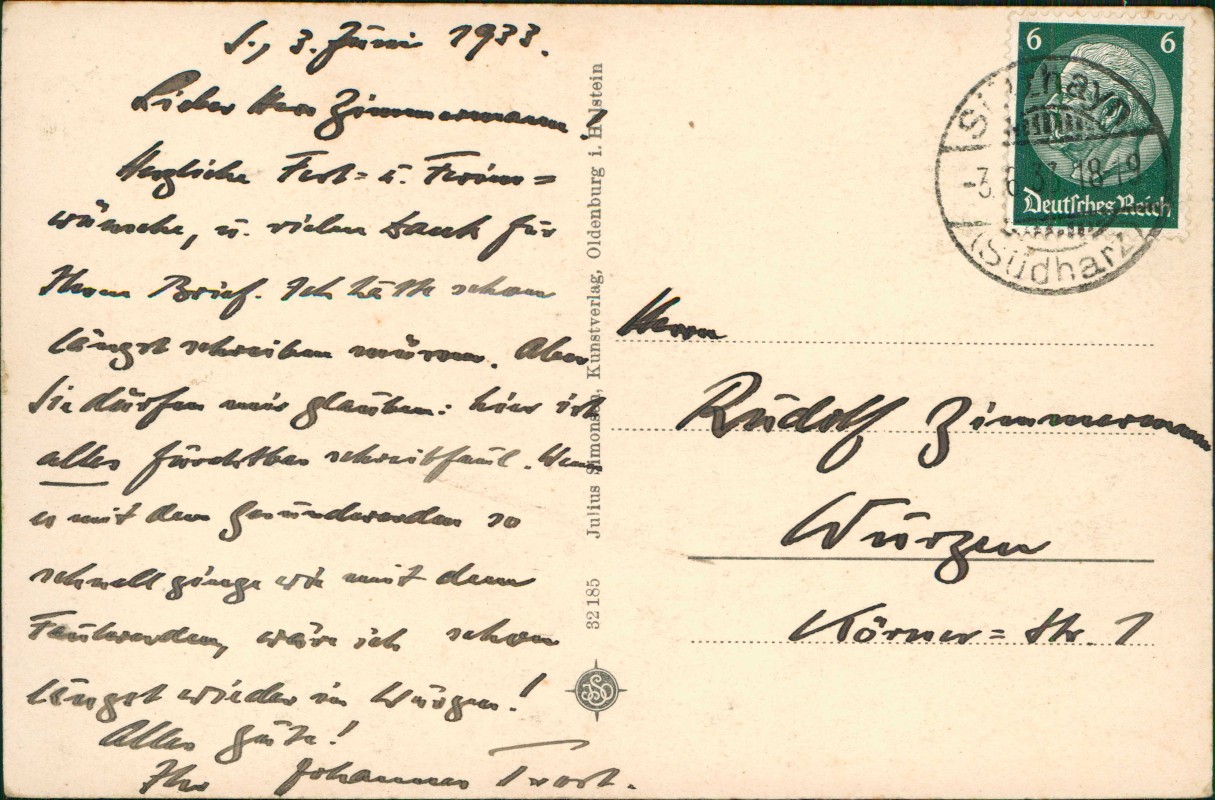 S., 3. Juni 1933.
Lieber Herr Zimmermann!
Herzliche Fest- u. Ferien=
wünsche, u. vielen Dank für
Ihren Brief. Ich hätte schon
längst schreiben müssen. Aber
Sie dürfen mir glauben: hier ist
alles furchtbar schreibfaul. Wenn
es mit dem Gesundwerden so
schnell ginge wie mit dem
Faulwerden, wäre ich schon
längst wieder in Wurzen!
Alles Gute!
Ihr Johannes
32185 Julius Simonsen, Kunstverlag, Oldenburg i. Holstein
6 6
Deutsches Reich
Sülzhayn
-3.6.33.18-19
(Südharz)
Herrn
Rudolf Zimmermann
Wurzen
Körner=Str. 1